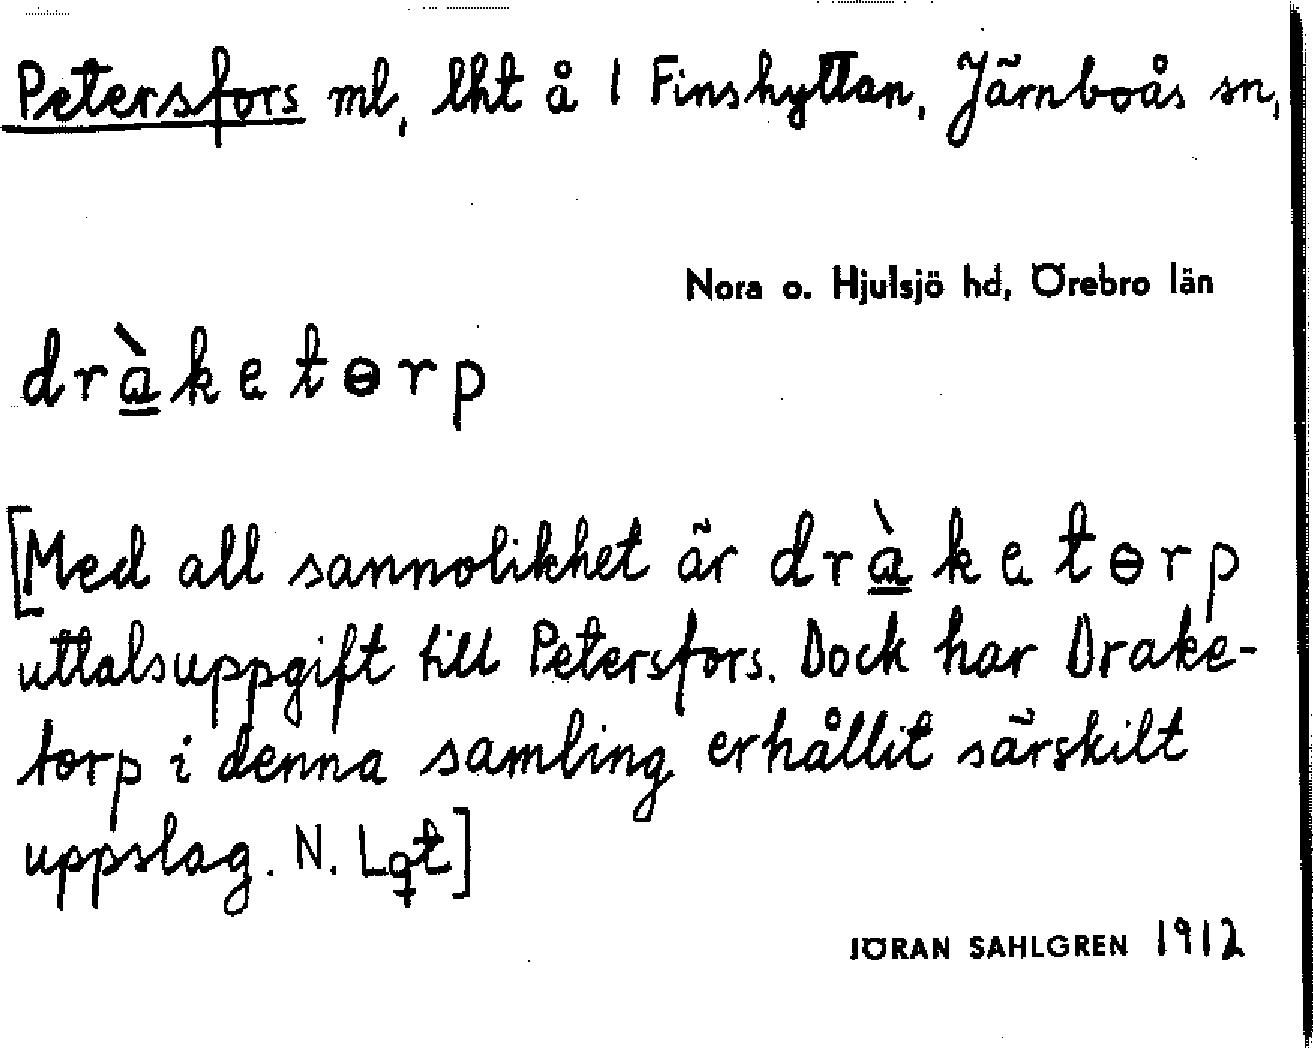 Petersfors ml, lht å 1 Finshyttan, Järnboås sn,
Nora o. Hjulsjö hd, Örebro län
dràketɵrp
[Med all sannolikhet är dràketɵrp
uttalsuppgift till Petersfors. Dock har Drake-
torp i denna samling erhållit särskilt
uppslag. N. Lqt]
JÖRAN SAHLGREN 1912